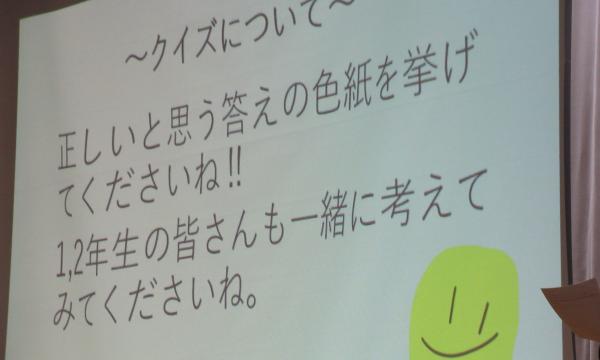 ～クイズについて～
正しいと思う答えの色紙を挙げ
てくださいね!!
1,2年生の皆さんも一緒に考えて
みてくださいね。